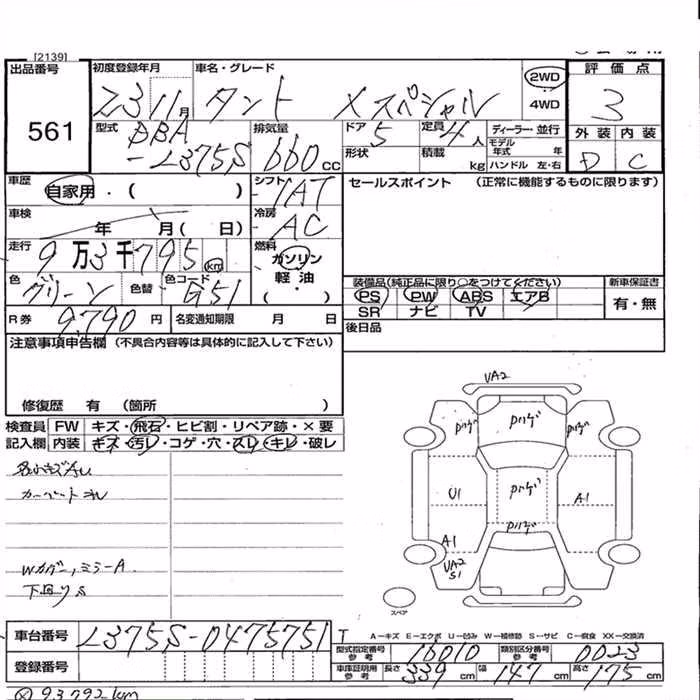 [2139]
出品番号
561
初度登録年月
23 11月
車名・グレード
タント Xスペシャル
2WD
4WD
評価点
3
外装 内装
D C
型式
DBA
-L375S
排気量
660 CC
ドア
5
定員
4人
ディーラー・並行
形状
積載 kg
モデル年式 年
ハンドル 左・右
車歴
自家用・( )
シフト
IAT
セールスポイント (正常に機能するものに限ります)
車検
年 月( 日)
冷房
AC
走行
9万3千795 km
燃料
ガソリン
軽油
( ・ )
色
グリーン
色替
色コード
G51
装備品(純正品に限り○をつけてください)
新車保証書
PS PW ABS エアB
SR ナビ TV
有・無
R券
9,790円
名変通知期限 月 日
後日品
注意事項申告欄 (不具合内容等は具体的に記入して下さい)
修復歴 有 (箇所 )
検査員 FW キズ・飛石・ヒビ割・リペア跡・×要
記入欄 内装 キズ・汚レ・コゲ・穴・スレ・キレ・破レ
カーペット
下回りS
UA2
ハゲ
ハゲ
ハゲ
U1
ハゲ
A1
ハゲ
A1
UA2
S1
スペア
車台番号
L375S-0475751
登録番号
A-キズ E-エクボ U-凹み W-補修跡 S-サビ C-腐食 XX-交換済
型式指定番号 参考
16010
類別区分番号 参考
0023
車庫証明用 参考
長さ 339 cm
幅 147 cm
高さ 175 cm
93792km